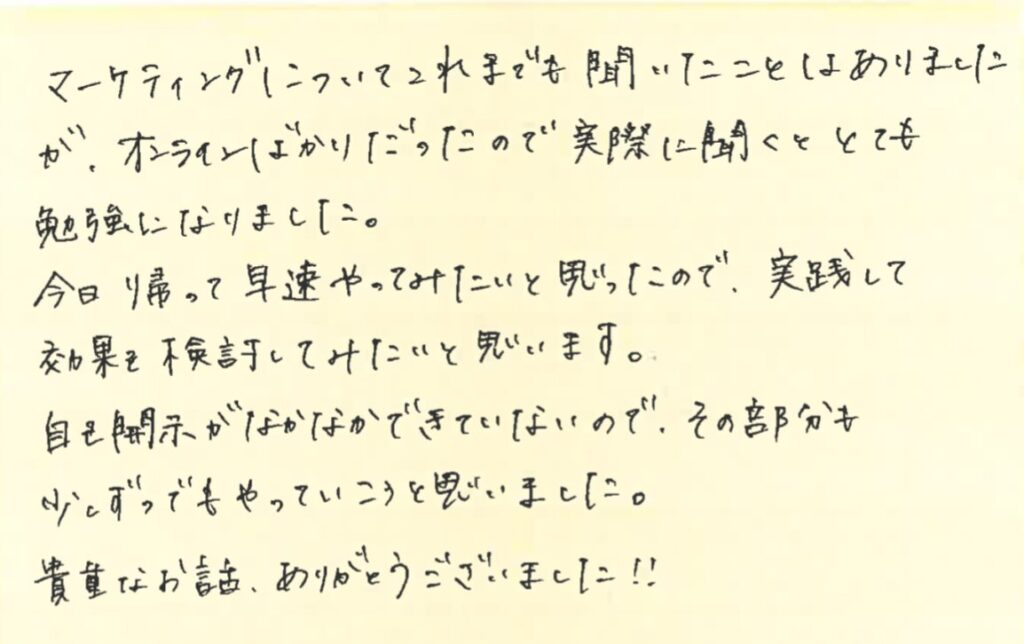 マーケティングについてこれまでも聞いたことはありました
が、オンラインばかりだったので実際に聞くととても
勉強になりました。
今日帰って早速やってみたいと思ったので、実践して
効果を検討してみたいと思います。
自己開示がなかなかできていないので、その部分も
少しずつでもやっていこうと思いました。
貴重なお話、ありがとうございました!!